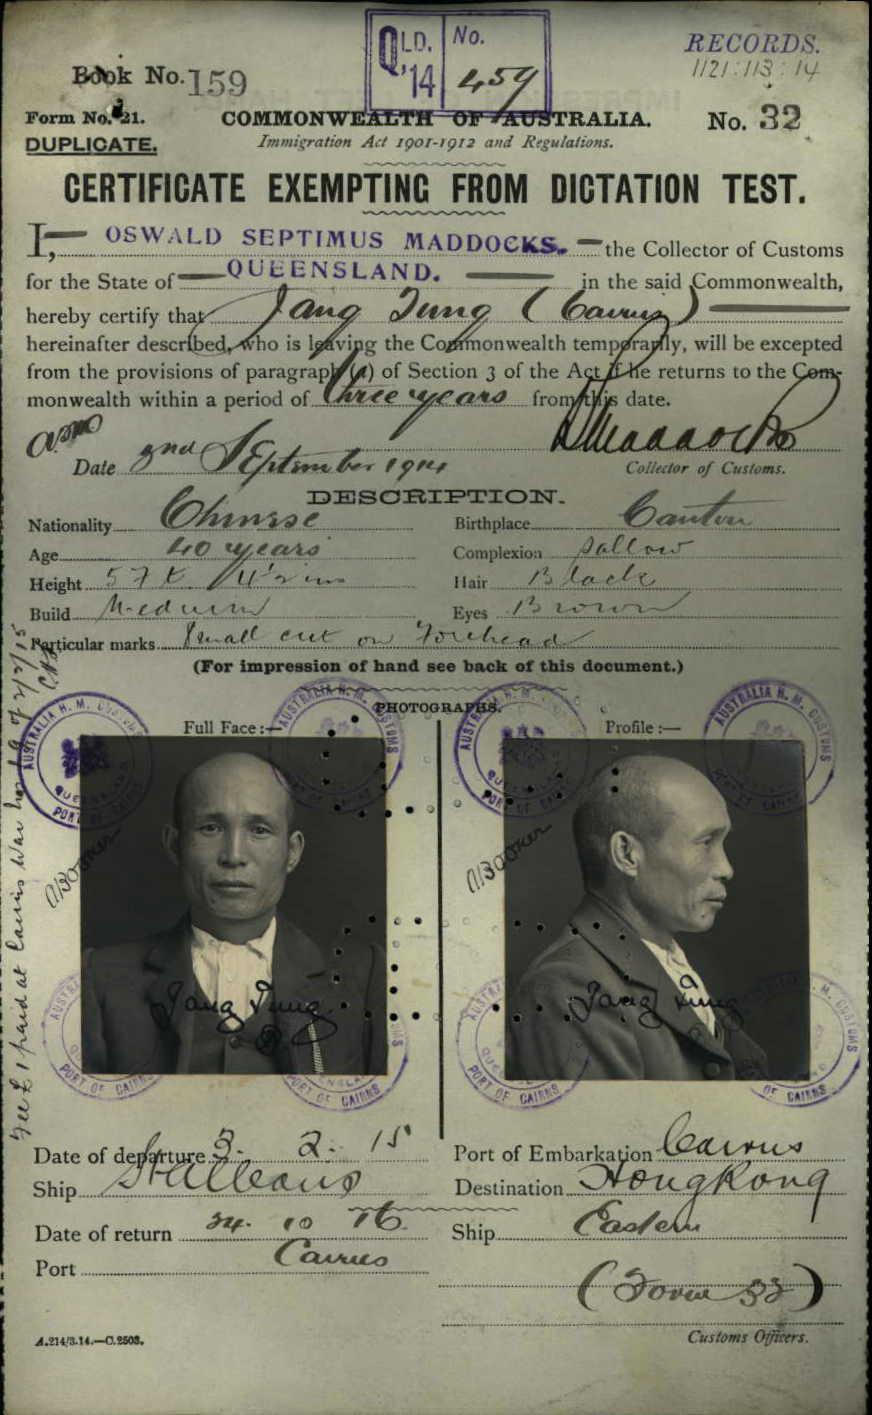 QLD. No.
'14 459
RECORDS.
1121:113:14
Book No. 159
Form No. 21.
COMMONWEALTH OF AUSTRALIA.
No. 32
DUPLICATE.
Immigration Act 1901-1912 and Regulations.
CERTIFICATE EXEMPTING FROM DICTATION TEST.
I, OSWALD SEPTIMUS MADDOCKS. the Collector of Customs
for the State of QUEENSLAND. in the said Commonwealth,
hereby certify that Jang Tung (Cairns)
hereinafter described, who is leaving the Commonwealth temporarily, will be excepted
from the provisions of paragraph (a) of Section 3 of the Act if he returns to the Com-
monwealth within a period of three years from this date.
OSMaddocks
Date 2nd September 1914 Collector of Customs.
DESCRIPTION.
Nationality Chinese Birthplace Canton
Age 40 years Complexion Sallow
Height 5 ft 4½ ins Hair Black
Build Medium Eyes Brown
Particular marks Small cut on Forehead
(For impression of hand see back of this document.)
PHOTOGRAPHS.
Full Face:— Profile:—
AUSTRALIA H. M. CUSTOMS
QUEENSLAND
PORT OF CAIRNS
AUSTRALIA H. M. CUSTOMS
PORT OF CAIRNS
AUSTRALIA H. M. CUSTOMS
QUEENSLAND
PORT OF CAIRNS
AUSTRALIA H. M. CUSTOMS
PORT OF CAIRNS
Jang Tung
Jang Tung
PORT OF CAIRNS
PORT OF CAIRNS
PORT OF CAIRNS
OF CAIRNS
Fee £1 paid at Cairns
Date of departure 3. 2. 15 Port of Embarkation Cairns
Ship St Albans Destination HongKong
Date of return 24. 10 16. Ship Eastern
Port Cairns
(Form 32)
A.214/3.14.—C.2503. Customs Officers.